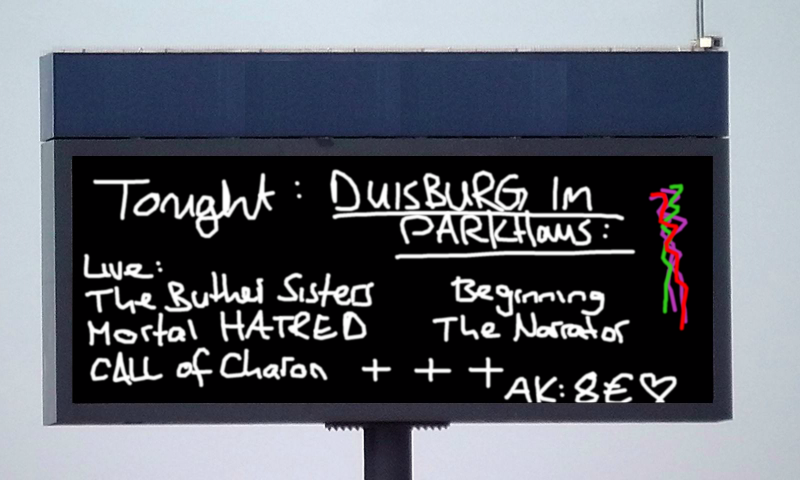 Tonight: DUISBURG IM
PARKHaus:
Live:
The Buther Sisters
Mortal HATRED
CALL of Charon + + +
Beginning
The Narrator
AK: 8€ ♡